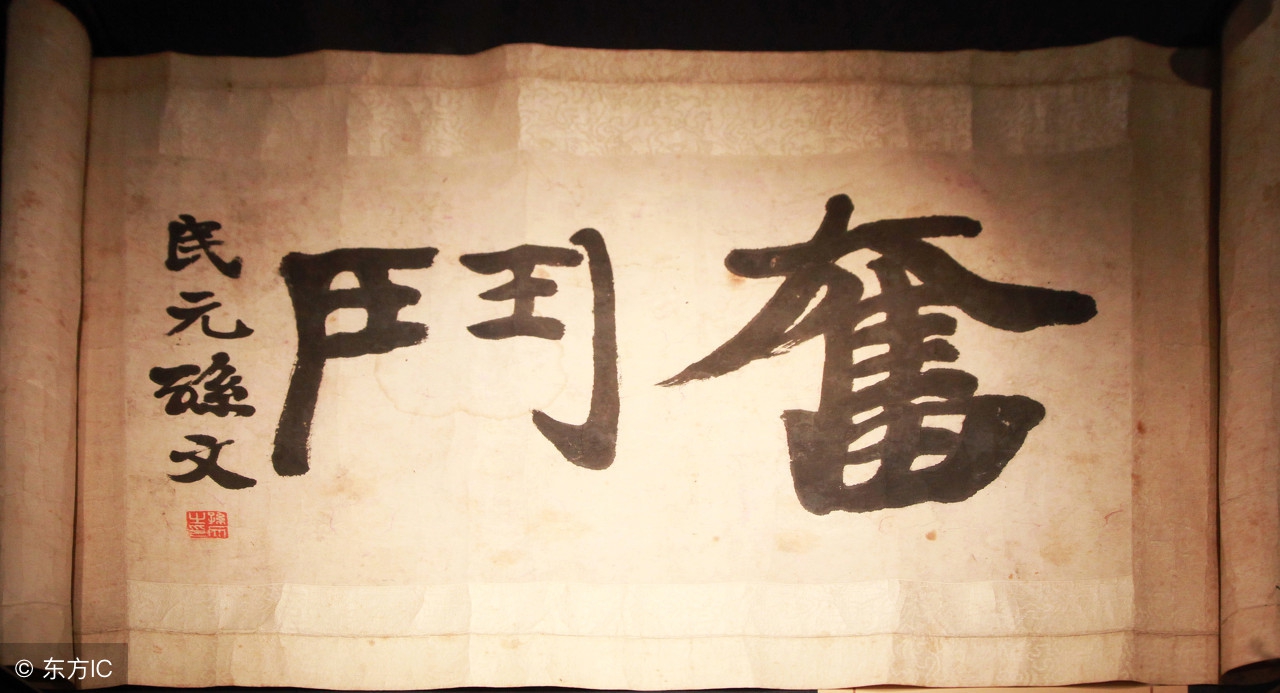 奮鬥
民元孫文
孫文之印
© 东方IC